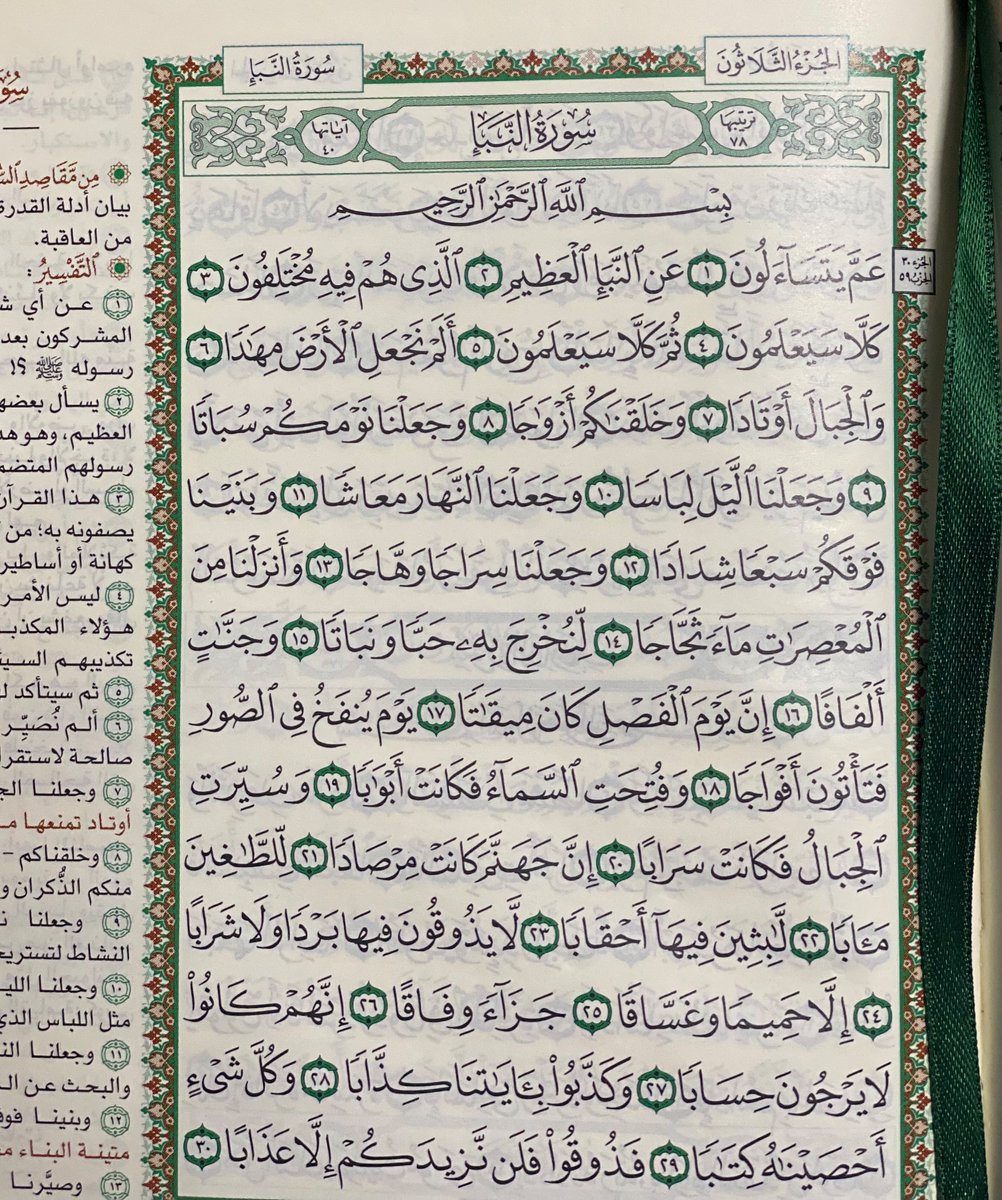 الجُزْءُ الثَّلَاثُونَ
سُورَةُ النَّبَإِ
تَرتيبُهَا ٧٨
سُورَةُ النَّبَإِ
آيَاتُهَا ٤٠
بِسۡمِ ٱللَّهِ ٱلرَّحۡمَٰنِ ٱلرَّحِيمِ
عَمَّ يَتَسَآءَلُونَ ١ عَنِ ٱلنَّبَإِ ٱلۡعَظِيمِ ٢ ٱلَّذِي هُمۡ فِيهِ مُخۡتَلِفُونَ ٣
كـَلَّا سَيَعۡلَمُونَ ٤ ثُمَّ كـَلَّا سَيَعۡلَمُونَ ٥ أَلَمۡ نَجۡعَلِ ٱلۡأَرۡضَ مِهَٰدٗا ٦
وَٱلۡجِبَالَ أَوۡتَادٗا ٧ وَخَلَقۡنَٰكُمۡ أَزۡوَٰجٗا ٨ وَجَعَلۡنَا نَوۡمَكُمۡ سُبَاتٗا
٩ وَجَعَلۡنَا ٱلَّيۡلَ لِبَاسٗا ١٠ وَجَعَلۡنَا ٱلنَّهَارَ مَعَاشٗا ١١ وَبَنَيۡنَا
فَوۡقَكُمۡ سَبۡعٗا شِدَادٗا ١٢ وَجَعَلۡنَا سِرَاجٗا وَهَّاجٗا ١٣ وَأَنزَلۡنَا مِنَ
ٱلۡمُعۡصِرَٰتِ مَآءٗ ثَجَّاجٗا ١٤ لِّنُخۡرِجَ بِهِۦ حَبّٗا وَنَبَاتٗا ١٥ وَجَنَّٰتٍ
أَلۡفَافًا ١٦ إِنَّ يَوۡمَ ٱلۡفَصۡلِ كَانَ مِيقَٰتٗا ١٧ يَوۡمَ يُنفَخُ فِي ٱلصُّورِ
فَتَأۡتُونَ أَفۡوَاجٗا ١٨ وَفُتِحَتِ ٱلسَّمَآءُ فَكَانَتۡ أَبۡوَٰبٗا ١٩ وَسُيِّرَتِ
ٱلۡجِبَالُ فَكَانَتۡ سَرَابًا ٢٠ إِنَّ جَهَنَّمَ كَانَتۡ مِرۡصَادٗا ٢١ لِّلطَّٰغِينَ
مَـَٔابٗا ٢٢ لَّٰبِثِينَ فِيهَآ أَحۡقَابٗا ٢٣ لَّا يَذُوقُونَ فِيهَا بَرۡدٗا وَلَا شَرَابًا
٢٤ إِلَّا حَمِيمٗا وَغَسَّاقٗا ٢٥ جَزَآءٗ وِفَاقًا ٢٦ إِنَّهُمۡ كَانُواْ
لَا يَرۡجُونَ حِسَابٗا ٢٧ وَكَذَّبُواْ بِـَٔايَٰتِنَا كِذَّابٗا ٢٨ وَكُلَّ شَيۡءٍ
أَحۡصَيۡنَٰهُ كِتَٰبٗا ٢٩ فَذُوقُواْ فَلَن نَّزِيدَكُمۡ إِلَّا عَذَابًا ٣٠
الجزء ٣٠
الحزب ٥٩
مِن مَّقَاصِدِ
بيان أدلة القدرة
من العاقبة.
التَّفْسِيرُ:
١ عـن أي
المشـركون بعد
رسـوله ﷺ ؟!
٢ يسـأل بعضه
العظيم، وهو هذ
رسولهم المتضم
٣ هـذا القـرآن
يصفونه به؛ من
كهانة أو أساطير
٤ ليس الأمر
هـؤلاء المكذبـ
تكذيبهـم السيئ
٥ ثم سيتأكد
٦ ألـم نُصَيِّـر
صالحة لاستقرا
٧ وجعلنـا الجـ
أوتـاد تمنعهـا مـ
٨ وخلقناكم –
منكم الذُّكران و
٩ وجعلنا نـ
النشاط لتستريحـ
١٠ وجعلنـا الليـ
مثل اللباس الذي
١١ وجعلنـا النـ
والبحث عن الـ
١٢ وبنينـا فوقـ
متينـة البناء مـ
١٣ وصيَّرنـا